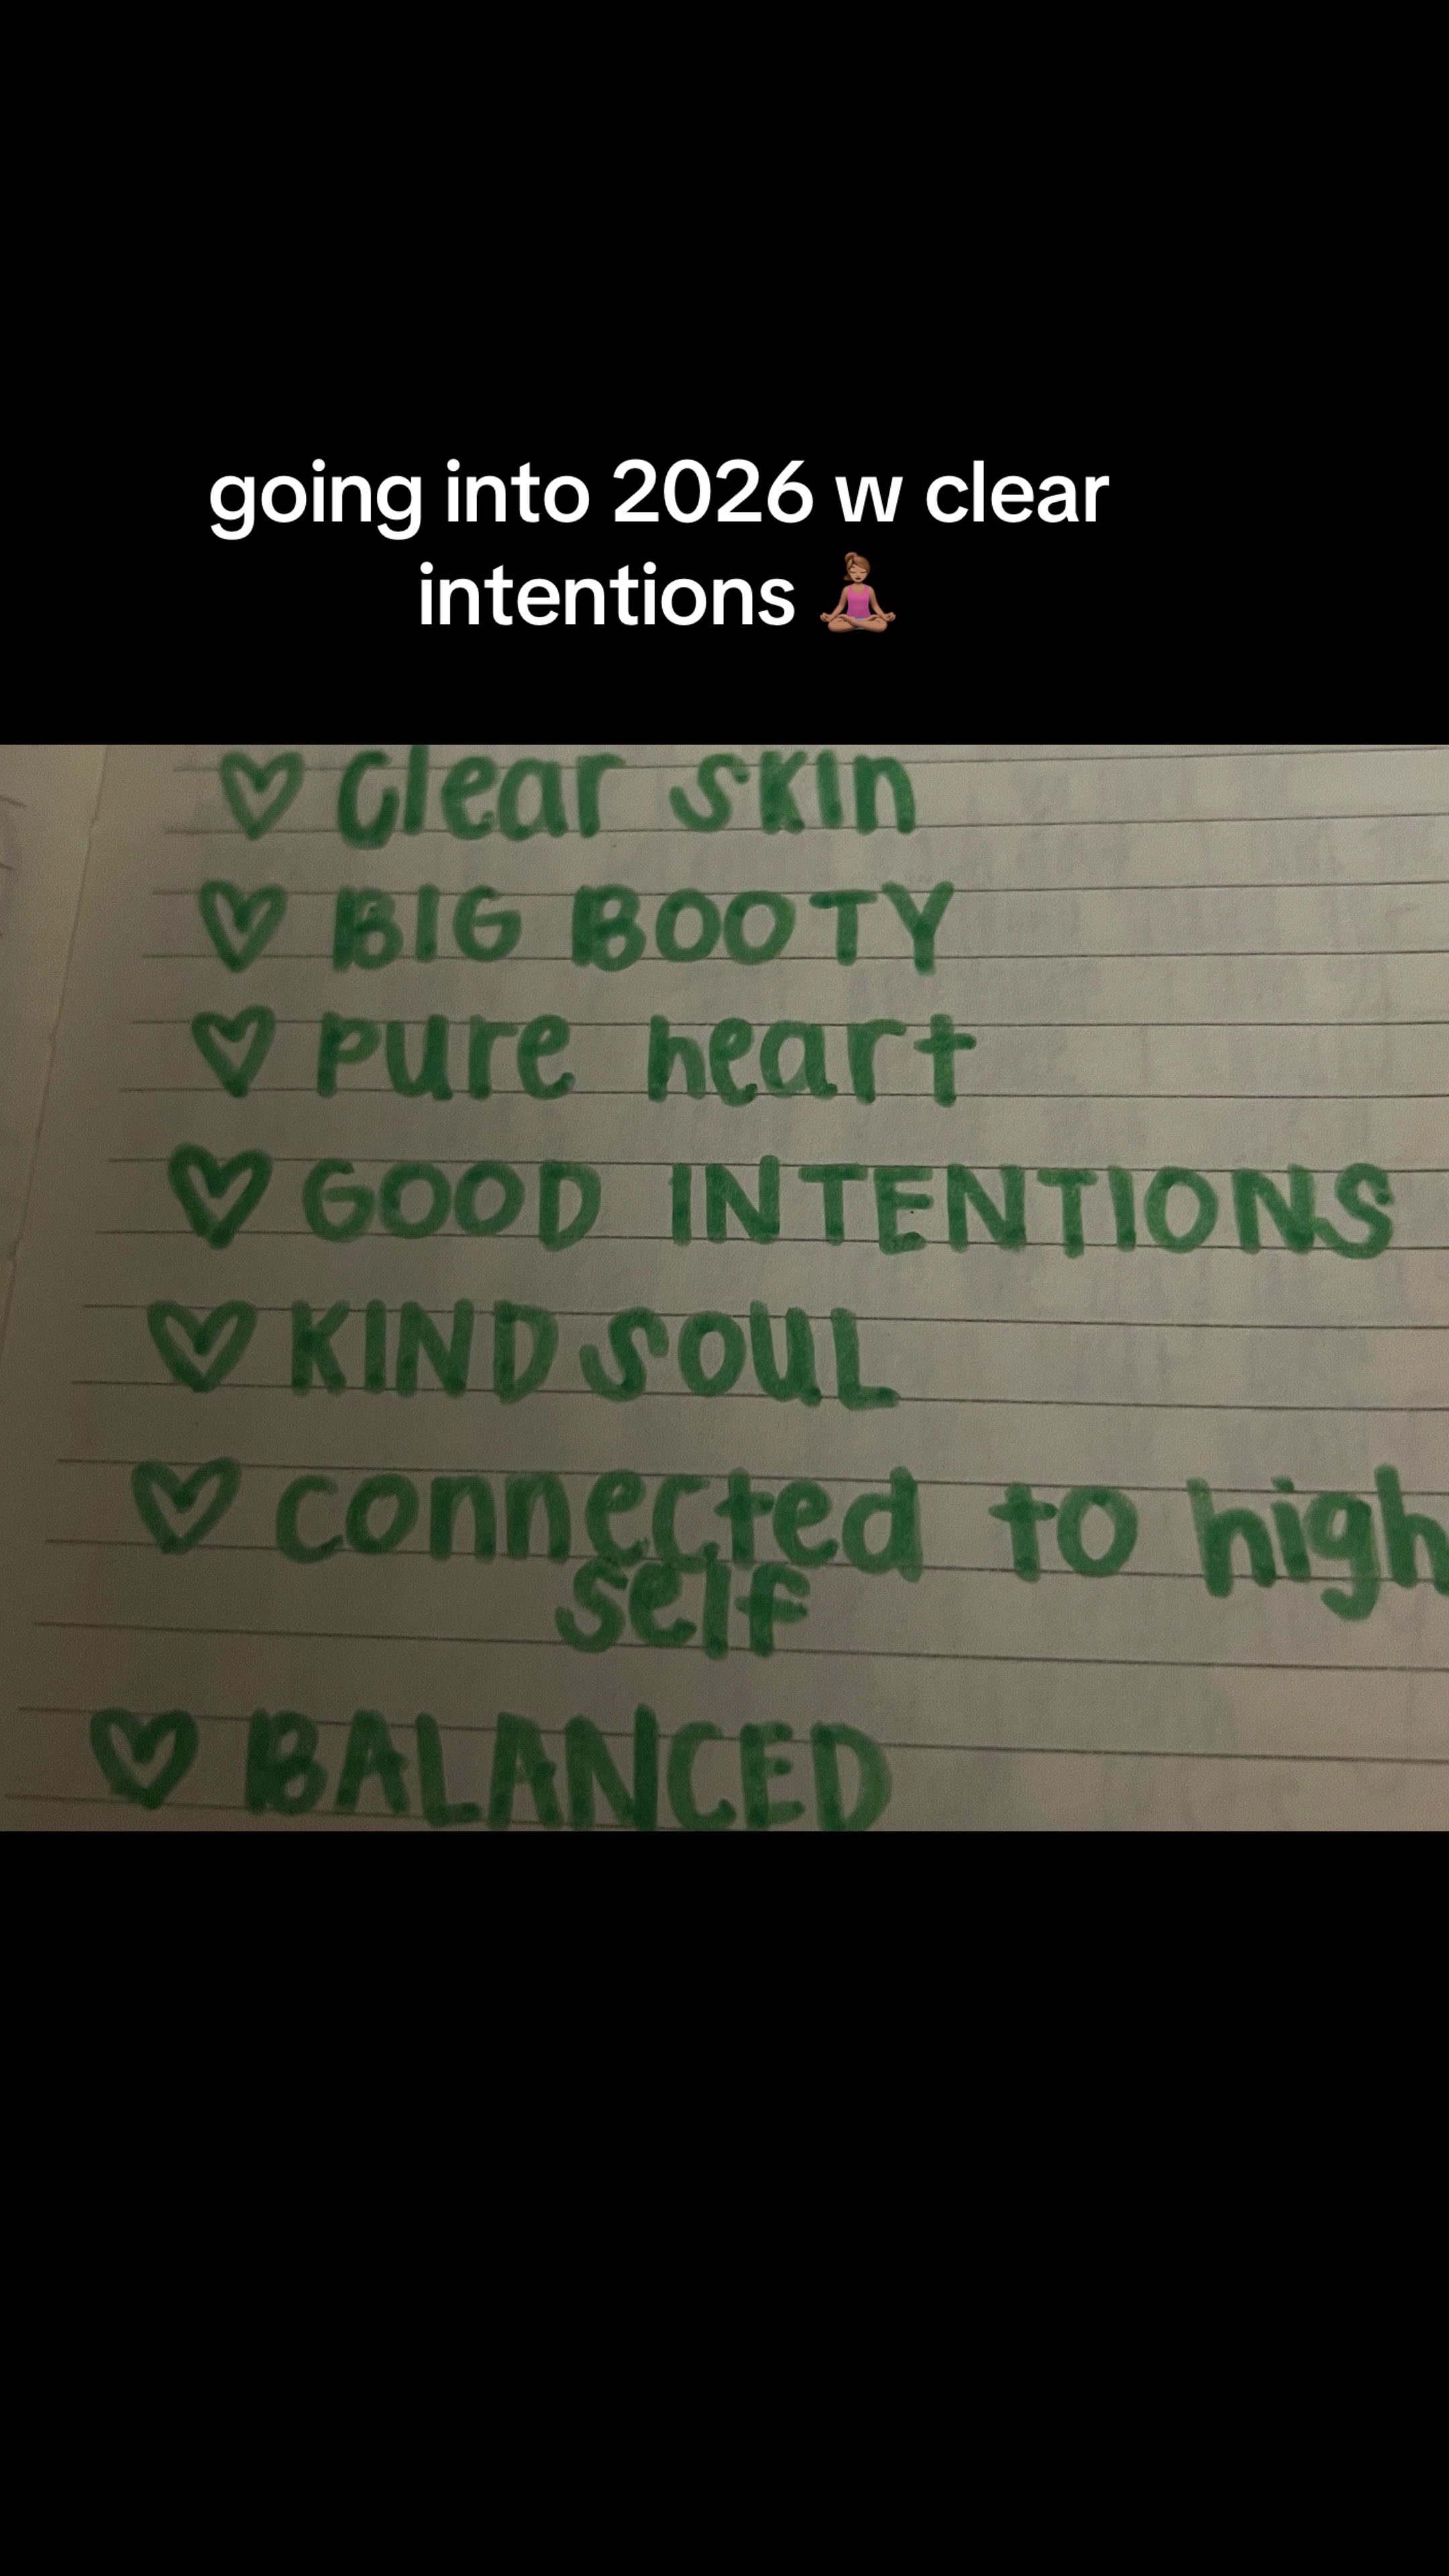 going into 2026 w clear
intentions 🧘🏽‍♀️
clear skin
BIG BOOTY
pure heart
GOOD INTENTIONS
KIND SOUL
connected to high
self
BALANCED